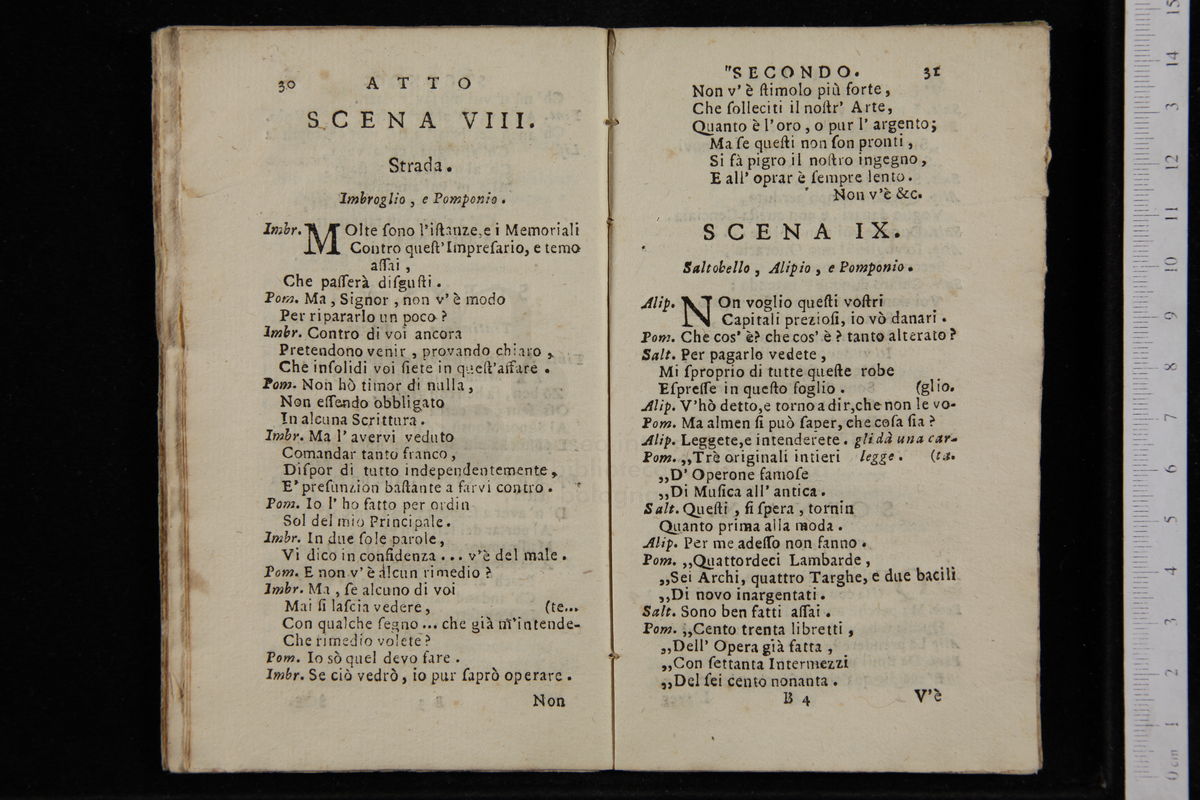 30 ATTO
SCENA VIII.
Strada.
Imbroglio, e Pomponio.
Imbr. MOlte ſono l'iſtanze, e i Memoriali
Contro queſt'Impreſario, e temo
aſſai,
Che paſſerà diſguſti.
Pom. Ma, Signor, non v'è modo
Per ripararlo un poco?
Imbr. Contro di voi ancora
Pretendono venir, provando chiaro,
Che inſolidi voi ſiete in queſt'affare.
Pom. Non hò timor di nulla,
Non eſſendo obbligato
In alcuna Scrittura.
Imbr. Ma l'avervi veduto
Comandar tanto franco,
Diſpor di tutto independentemente,
E' preſunzion baſtante a farvi contro.
Pom. Io l'ho fatto per ordin
Sol del mio Principale.
Imbr. In due ſole parole,
Vi dico in confidenza... v'è del male.
Pom. E non v'è alcun rimedio?
Imbr. Ma, ſe alcuno di voi
Mai ſi laſcia vedere, (te...
Con qualche ſegno... che già m'intende-
Che rimedio volete?
Pom. Io sò quel devo fare.
Imbr. Se ciò vedrò, io pur ſaprò operare.
Non
"SECONDO. 31
Non v'è ſtimolo più forte,
Che ſolleciti il noſtr' Arte,
Quanto è l'oro, o pur l'argento;
Ma ſe queſti non ſon pronti,
Si fà pigro il noſtro ingegno,
E all' oprar è ſempre lento.
Non v'è &c.
SCENA IX.
Saltobello, Alipio, e Pomponio.
Alip. NOn voglio queſti voſtri
Capitali prezioſi, io vò danari.
Pom. Che cos' è? che cos' è? tanto alterato?
Salt. Per pagarlo vedete,
Mi ſproprio di tutte queſte robe
Eſpreſſe in queſto foglio. (glio.
Alip. V'hò detto, e torno a dir, che non le vo-
Pom. Ma almen ſi può ſaper, che coſa ſia?
Alip. Leggete, e intenderete. gli dà una car-
Pom. ,,Trè originali intieri legge. (ta.
,,D' Operone famoſe
,,Di Muſica all' antica.
Salt. Queſti, ſi ſpera, tornin
Quanto prima alla moda.
Alip. Per me adeſſo non fanno.
Pom. ,,Quattordeci Lambarde,
,,Sei Archi, quattro Targhe, e due bacili
,,Di novo inargentati.
Salt. Sono ben fatti aſſai.
Pom. ,,Cento trenta libretti,
,,Dell' Opera già fatta,
,,Con ſettanta Intermezzi
,,Del ſei cento nonanta.
B 4 V'è
0 cm 1 2 3 4 5 6 7 8 9 10 11 12 13 14 15